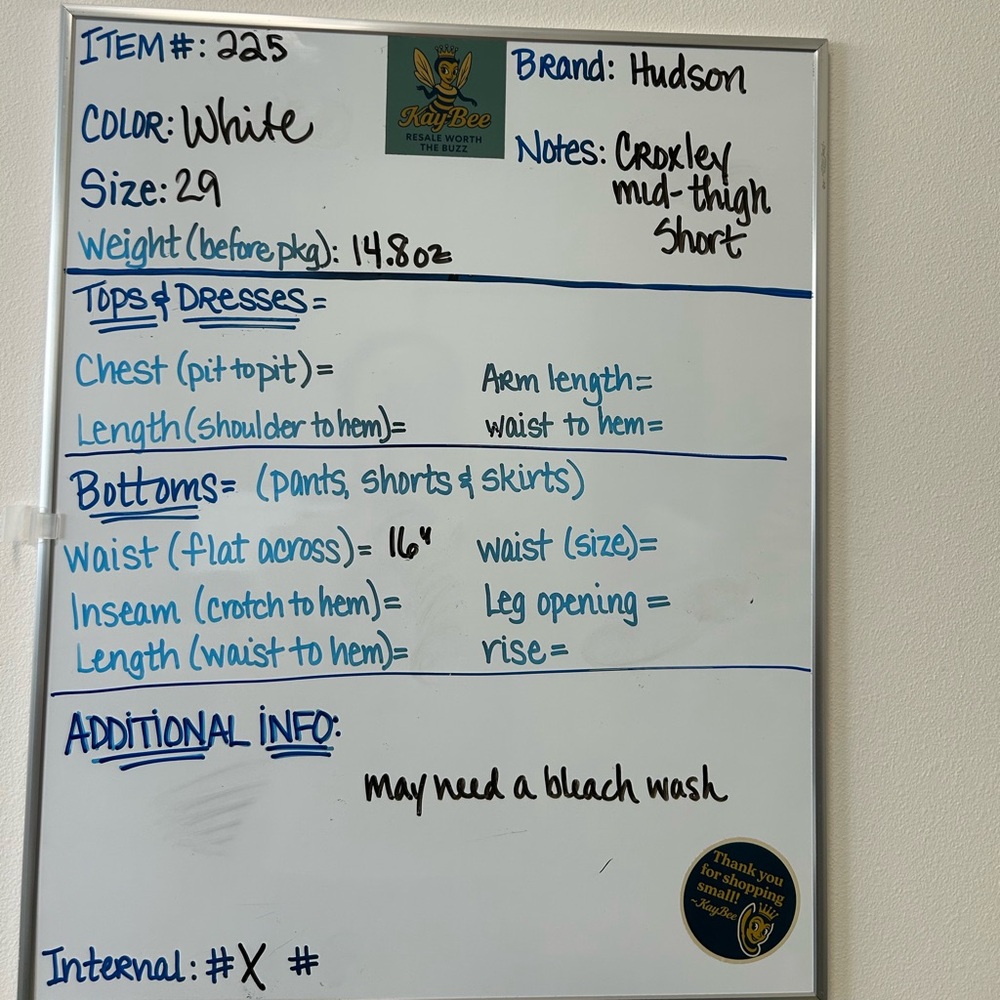 ITEM#: 225
COLOR: White
Size: 29
Weight (before pkg): 14.8oz
KayBee
RESALE WORTH
THE BUZZ
Brand: Hudson
Notes: Croxley
mid-thigh
Short
Tops & Dresses=
Chest (pit to pit)=
Arm length=
Length (shoulder to hem)=
waist to hem=
Bottoms= (pants, shorts & skirts)
Waist (flat across)= 16"
waist (size)=
Inseam (crotch to hem)=
Leg opening =
Length (waist to hem)=
rise=
ADDITIONAL INFO:
may need a bleach wash
Thank you
for shopping
small!
~KayBee
Internal: #X #